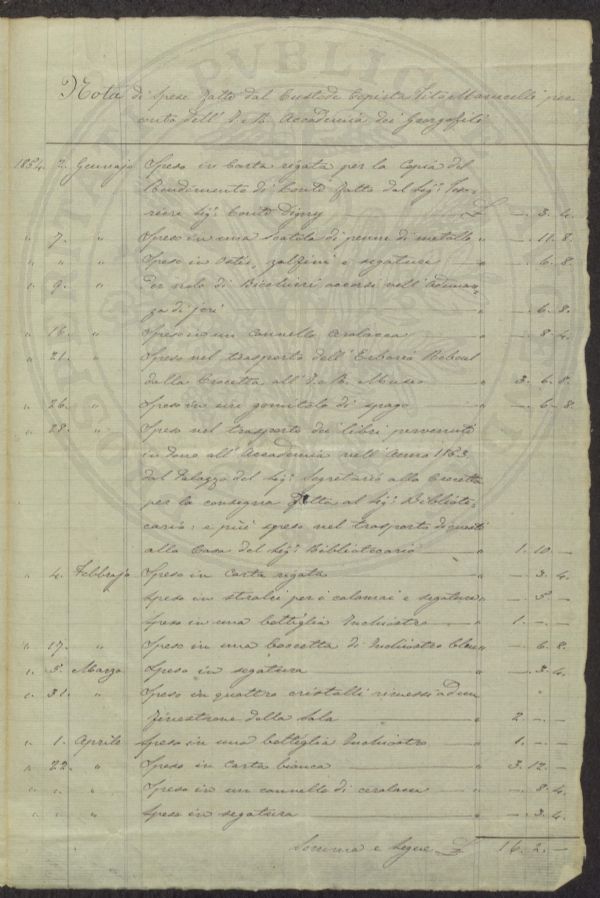 PVBLIC
Nota di Spese fatte dal Custode Copista per
conto dell' I. e R. Accademia dei Georgofili
1854. 2. Gennajo Speso in Carta rigata per la Copia del
Rendimento di Conto fatto dal Sig.r Teso-
riere Sig.r Conte Digny £ —. 3. 4.
" 7. " Speso in una Scatola di penne di metallo " —. 11. 8.
" " " Speso in Ostie, zolfini e segatura " —. 6. 8.
" 9. " Per nolo di Bicchieri occorsi nell' Adunan-
za di jeri " —. 6. 8.
" 16. " Speso in un cannello ceralacca " —. 8. 4.
" 21. " Speso nel trasporto dell' Erbario Reboul
dalla Crocetta all' I. e R. Museo " 3. 6. 8.
" 26. " Speso in un gomitolo di spago " —. 6. 8.
" 28. " Speso nel trasporto dei libri pervenuti
in dono all' Accademia nell' Anno 1853
dal Palazzo del Sig.r Segretario alla Crocetta
per la consegna fatta al Sig.r Bibliote-
cario: e più speso nel trasporto di questi
alla Casa del Sig.r Bibliotecario " 1. 10. —
" 4. Febbrajo Speso in Carta rigata " —. 3. 4.
Speso in stralci per i calamai e segatura " —. 5. —
Speso in una bottiglia Inchiostro " 1. —. —
" 17. " Speso in una boccetta di Inchiostro bleu " —. 6. 8.
" 3. Marzo Speso in segatura " —. 3. 4.
" 31. " Speso in quattro cristalli rimessi ad un
finestrone della Sala " 2. —. —
" 1. Aprile Speso in una bottiglia Inchiostro " 1. —. —
" 22. " Speso in carta bianca " 3. 12. —
" " " Speso in un cannello di ceralacca " —. 8. 4.
" " " Speso in segatura " —. 3. 4.
Somma e segue £ 16. 2. —